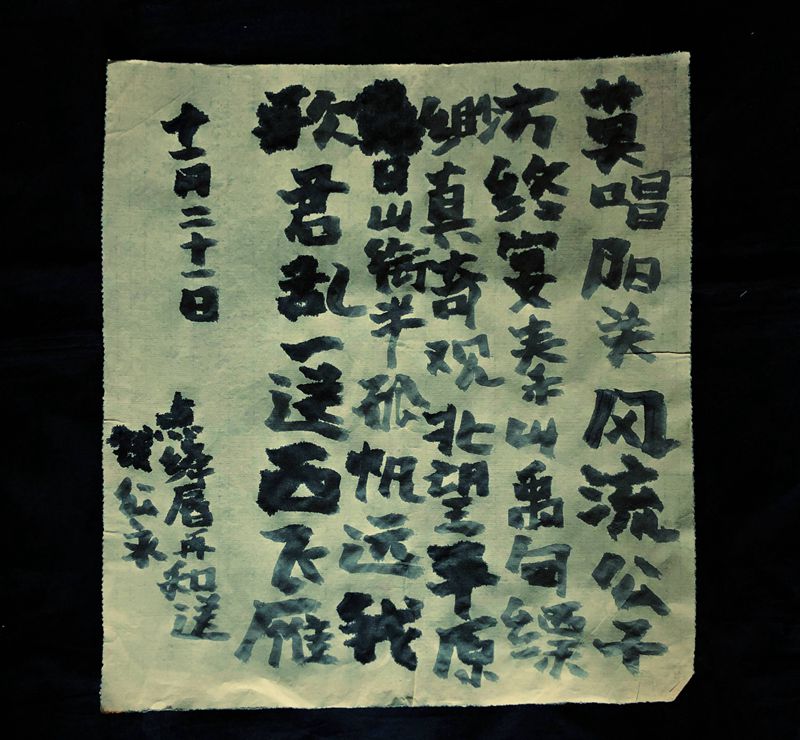 莫唱阳关风流公子
方终宴秦山禹甸缥
缈真奇观北望平原
日山衔半孤帆远我
歌君乱一送西飞雁
十一月二十一日
点绛唇再和送
钱公永